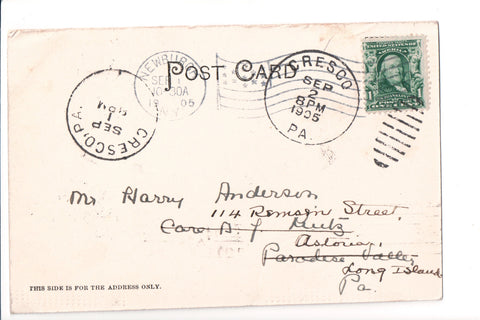 POST CARD
NEWBURGH
SEP 1
10-30A
1905
N.Y.
CRESCO
SEP
2
8PM
1905
PA.
UNITED STATES OF AMERICA
1
CRESCO, PA.
SEP
1
PM
Mr Harry Anderson
114 Remsen Street,
Care A. J. Kutz
Astoria,
Paradise Valley,
Long Island
Pa.
THIS SIDE IS FOR THE ADDRESS ONLY.